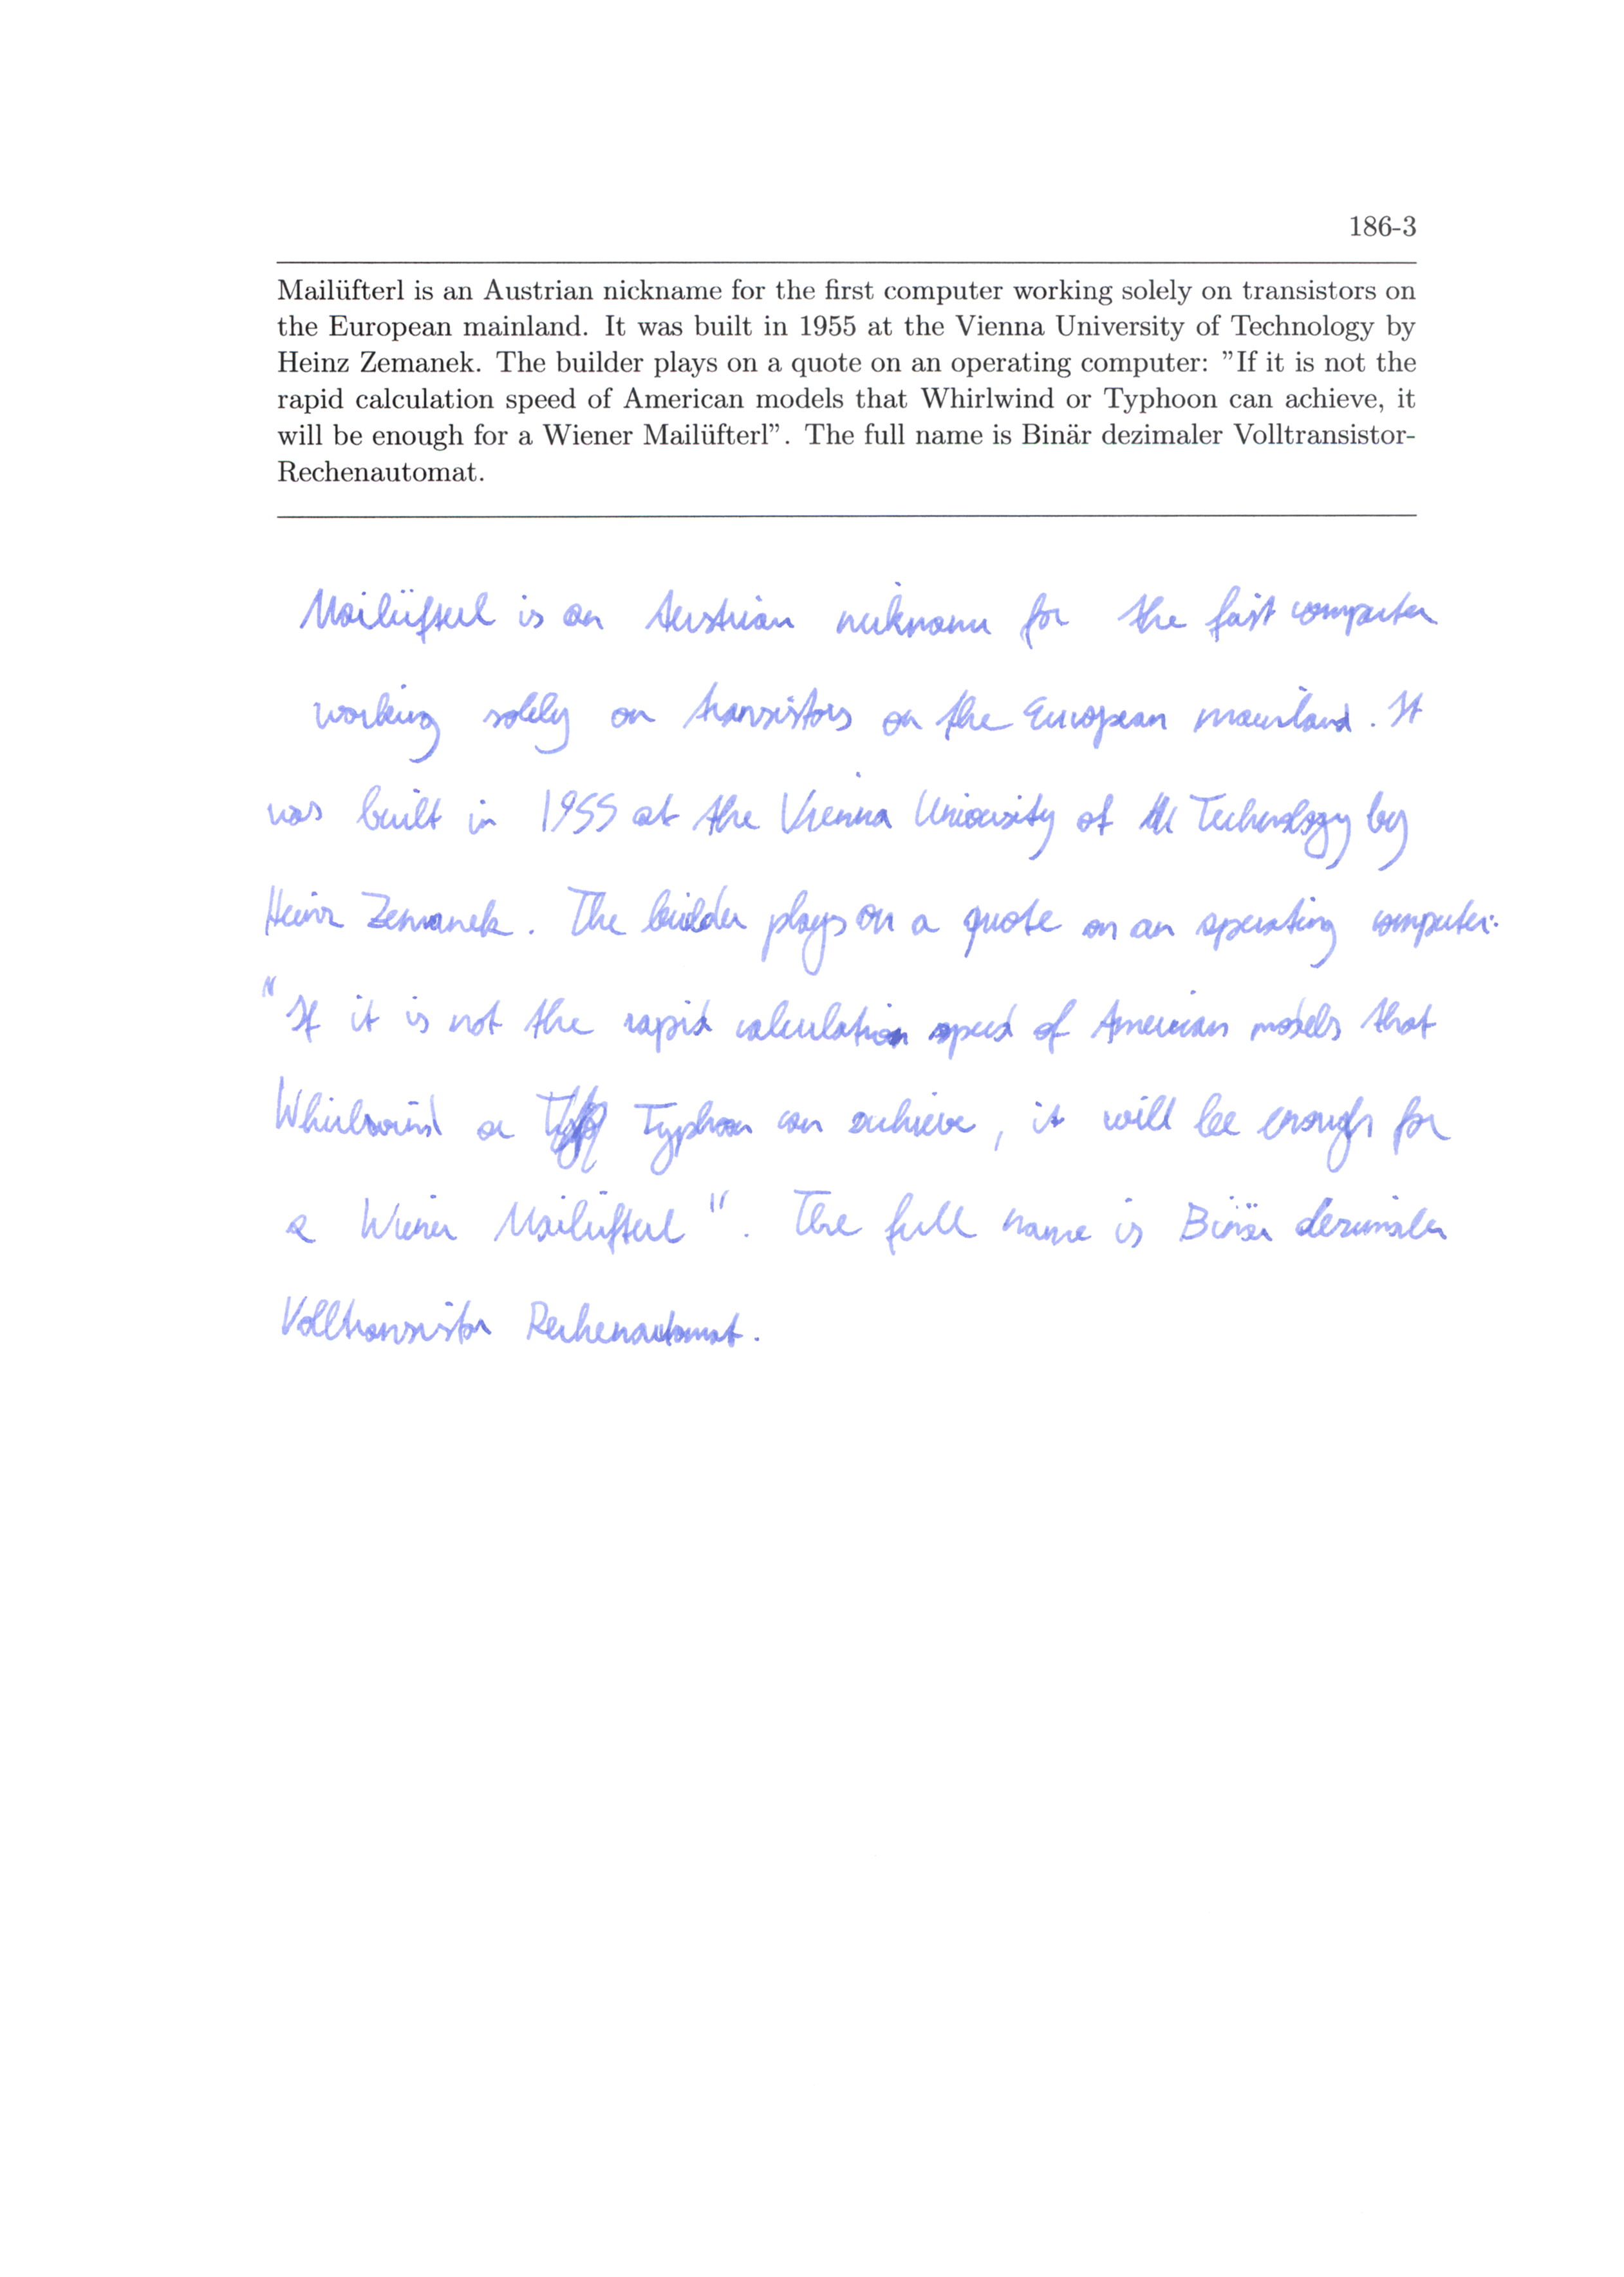 186-3
Mailüfterl is an Austrian nickname for the first computer working solely on transistors on
the European mainland. It was built in 1955 at the Vienna University of Technology by
Heinz Zemanek. The builder plays on a quote on an operating computer: ”If it is not the
rapid calculation speed of American models that Whirlwind or Typhoon can achieve, it
will be enough for a Wiener Mailüfterl”. The full name is Binär dezimaler Volltransistor-
Rechenautomat.
Mailüfterl is an Austrian nickname for the first computer
working solely on transistors on the European mainland. It
was built in 1955 at the Vienna University of Technology by
Heinz Zemanek. The builder plays on a quote on an operating computer:
"If it is not the rapid calculation speed of American models that
Whirlwind or Typhoon can achieve, it will be enough for
a Wiener Mailüfterl". The full name is Binär dezimaler
Volltransistor Rechenautomat.